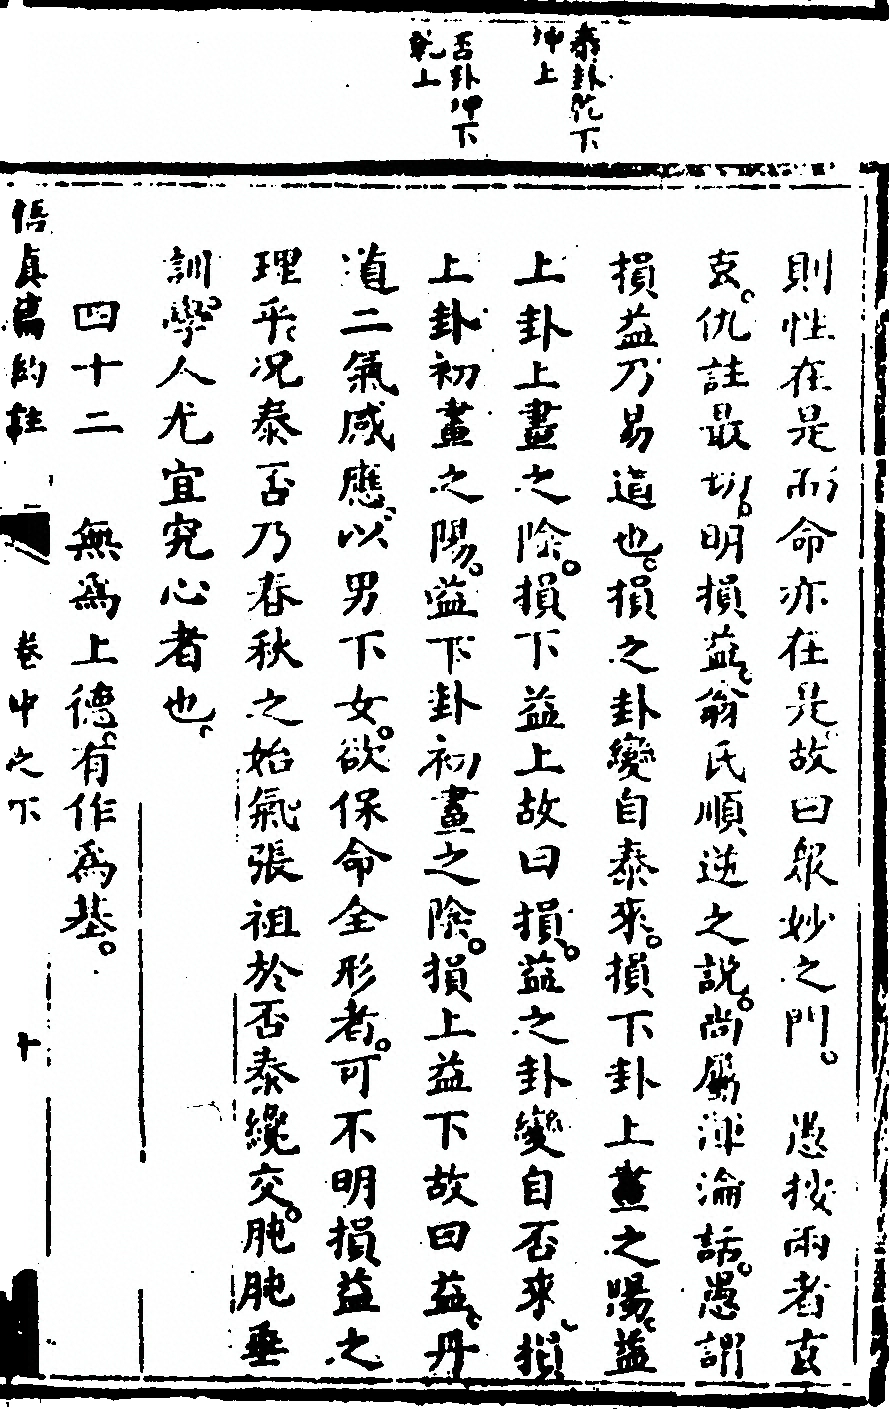 泰卦乾下
坤上
否卦坤下
乾上
則性在是而命亦在是故曰衆妙之門。愚按兩者玄
玄。仇註最切。明損益。翁氏順逆之說。尚屬渾淪話。愚謂
損益乃易道也。損之卦變自泰來。損下卦上畫之陽。益
上卦上畫之陰。損下益上故曰損。益之卦變自否來。損
上卦初畫之陽。益下卦初畫之陰。損上益下故曰益。丹
道二氣感應。以男下女。欲保命全形者。可不明損益之
理乎。况泰否乃春秋之始氣張祖於否泰纔交。肫肫垂
訓學人尤宜究心者也。
四十二 無爲上德。有作爲基。
悟真篇約註 卷中之下 十